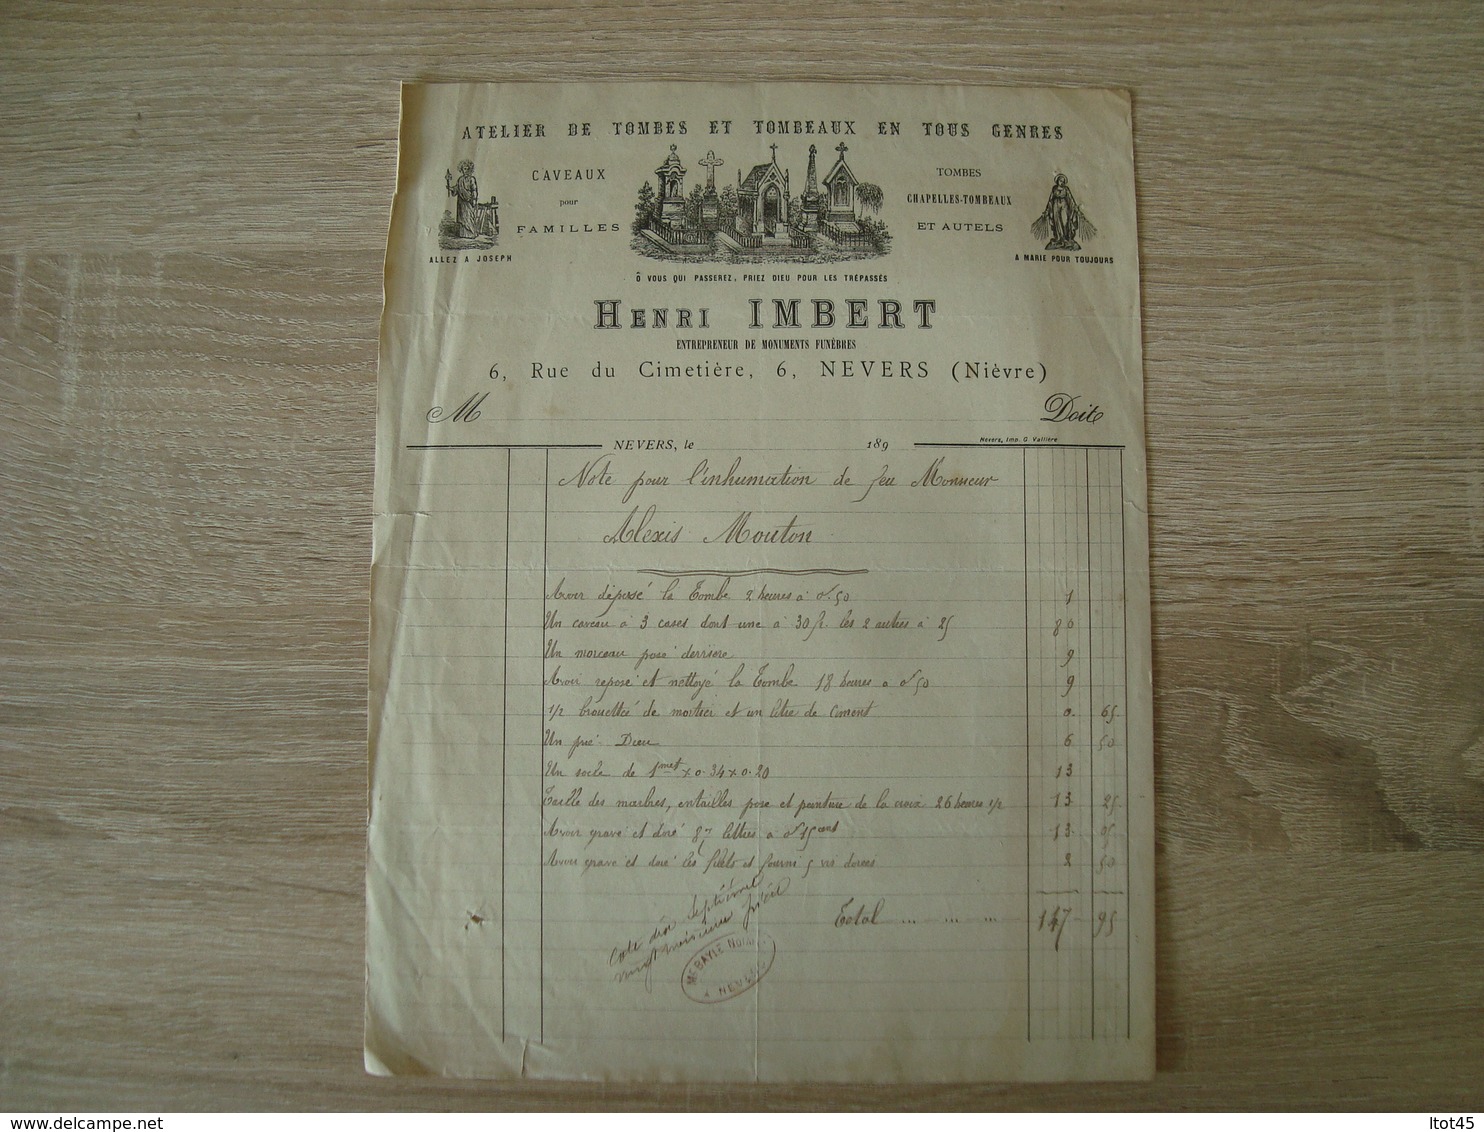 ATELIER DE TOMBES ET TOMBEAUX EN TOUS GENRES
CAVEAUX
pour
FAMILLES
TOMBES
CHAPELLES-TOMBEAUX
ET AUTELS
ALLEZ A JOSEPH
A MARIE POUR TOUJOURS
Ô VOUS QUI PASSEREZ, PRIEZ DIEU POUR LES TRÉPASSÉS
HENRI IMBERT
ENTREPRENEUR DE MONUMENTS FUNÈBRES
6, Rue du Cimetière, 6, NEVERS (Nièvre)
M Doit
NEVERS, le 189
Nevers, Imp. G. Vallière
Note pour l'inhumation de feu Monsieur
Alexis Mouton
Avoir déposé la Tombe 2 heures à 0f.50 1
Un caveau à 3 cases dont une à 30 f. les 2 autres à 25 80
Un morceau posé derrière 9
Avoir reposé et nettoyé la Tombe 18 heures a 0f50 9
1/2 brouettée de mortier et un litre de Ciment 0. 65
Un prié-Dieu 6 50
Un socle de 1met x 0.34 x 0.20 13
Taille des marbres, entailles pose et peinture de la croix 26 heures 1/2 13 25
Avoir gravé et doré 87 lettres a 0f15cent 13 05
Avoir gravé et doré les filets et fourni 5 vis dorées 2 50
Total ... ... ... 147 95
Cote dix septième
pièce
Me BAYLE NOTAIRE
A NEVERS
Itot45